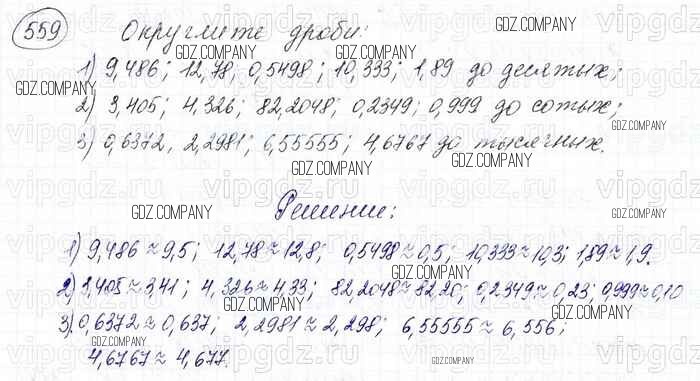 559 Округлите дроби:
1) 9,486; 12,78; 0,5498; 10,333; 1,89 до десятых;
2) 3,405; 4,326; 82,2048; 0,2349; 0,999 до сотых;
3) 0,6372, 2,2981; 6,55555; 4,6767 до тысячных.
Решение:
1) 9,486≈9,5; 12,78≈12,8; 0,5498≈0,5; 10,333≈10,3; 1,89≈1,9.
2) 3,405≈3,41; 4,326≈4,33; 82,2048≈82,20; 0,2349≈0,23; 0,999≈0,10
3). 0,6372≈0,637; 2,2981≈2,298; 6,55555≈6,556;
4,6767≈4,677.
GDZ.COMPANY
GDZ.COMPANY
GDZ.COMPANY
GDZ.COMPANY
GDZ.COMPANY
GDZ.COMPANY
GDZ.COMPANY
GDZ.COMPANY
GDZ.COMPANY
GDZ.COMPANY
GDZ.COMPANY
GDZ.COMPANY
GDZ.COMPANY
vipgdz.ru